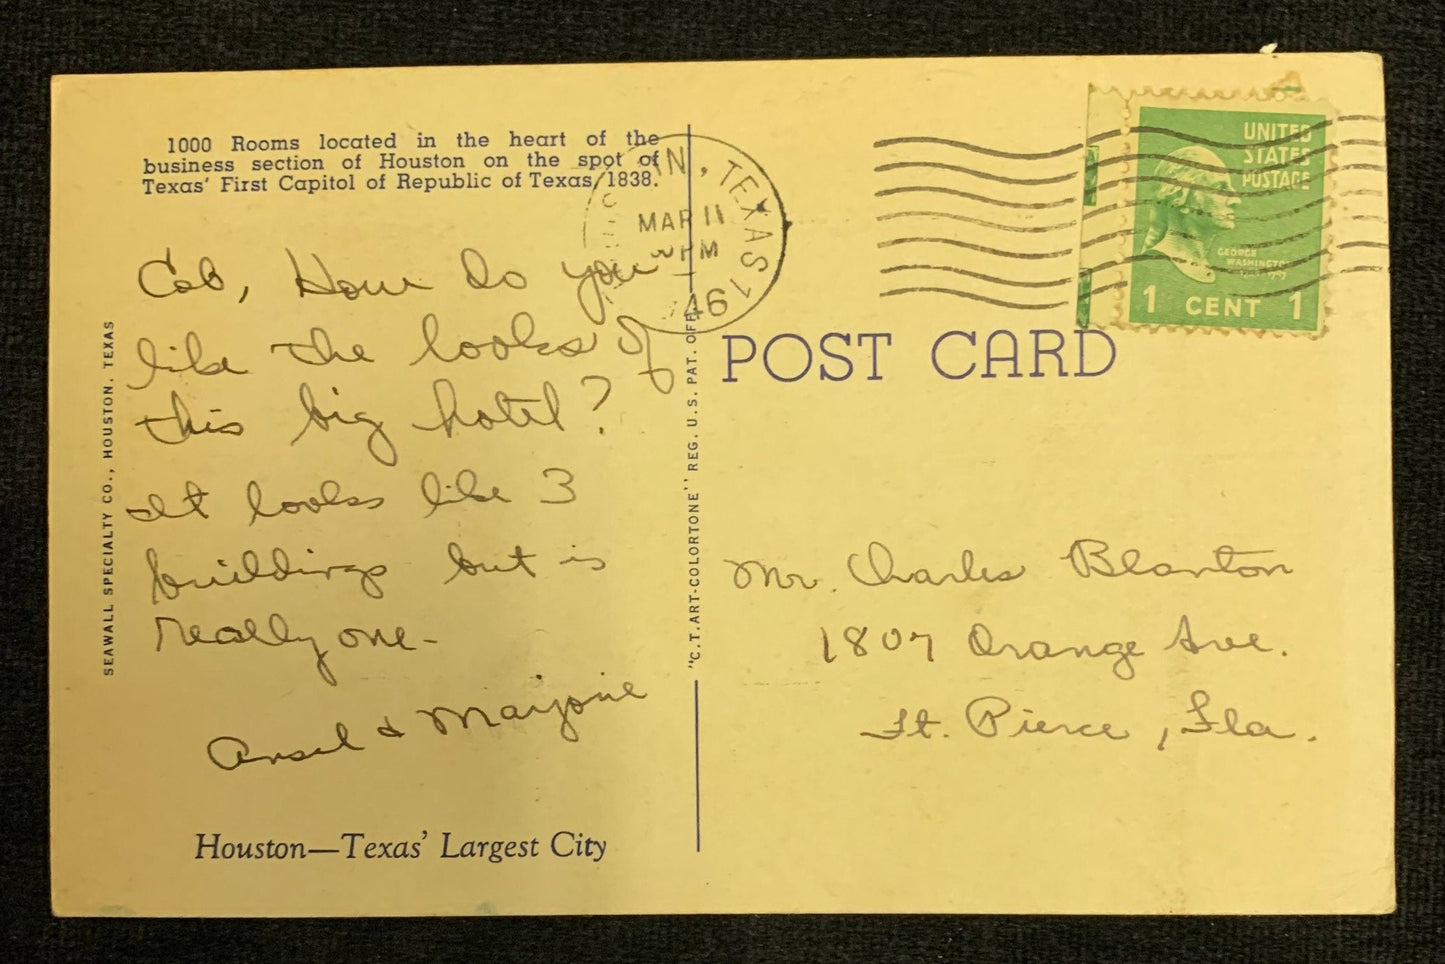 1000 Rooms located in the heart of the
business section of Houston on the spot of
Texas' First Capitol of Republic of Texas, 1838.
Cob, How do you
like the looks of
this big hotel?
It looks like 3
buildings but is
really one-
Ansel & Marjorie
Houston—Texas' Largest City
SEAWALL SPECIALTY CO., HOUSTON, TEXAS
"C.T. ART-COLORTONE" REG. U.S. PAT. OFF.
TEXAS
MAR 11
PM
46
UNITED
STATES
POSTAGE
GEORGE
WASHINGTON
1 CENT 1
POST CARD
Mr. Charles Blanton
1807 Orange Ave.
Ft. Pierce, Fla.